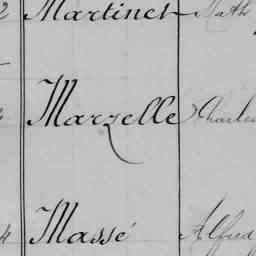 2 Martinet Math
Marzelle Charles
4 Massé Alfred